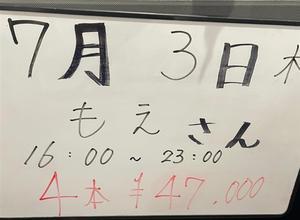 7月 3日 木
もえさん
16:00~23:00
4本 ¥47.000